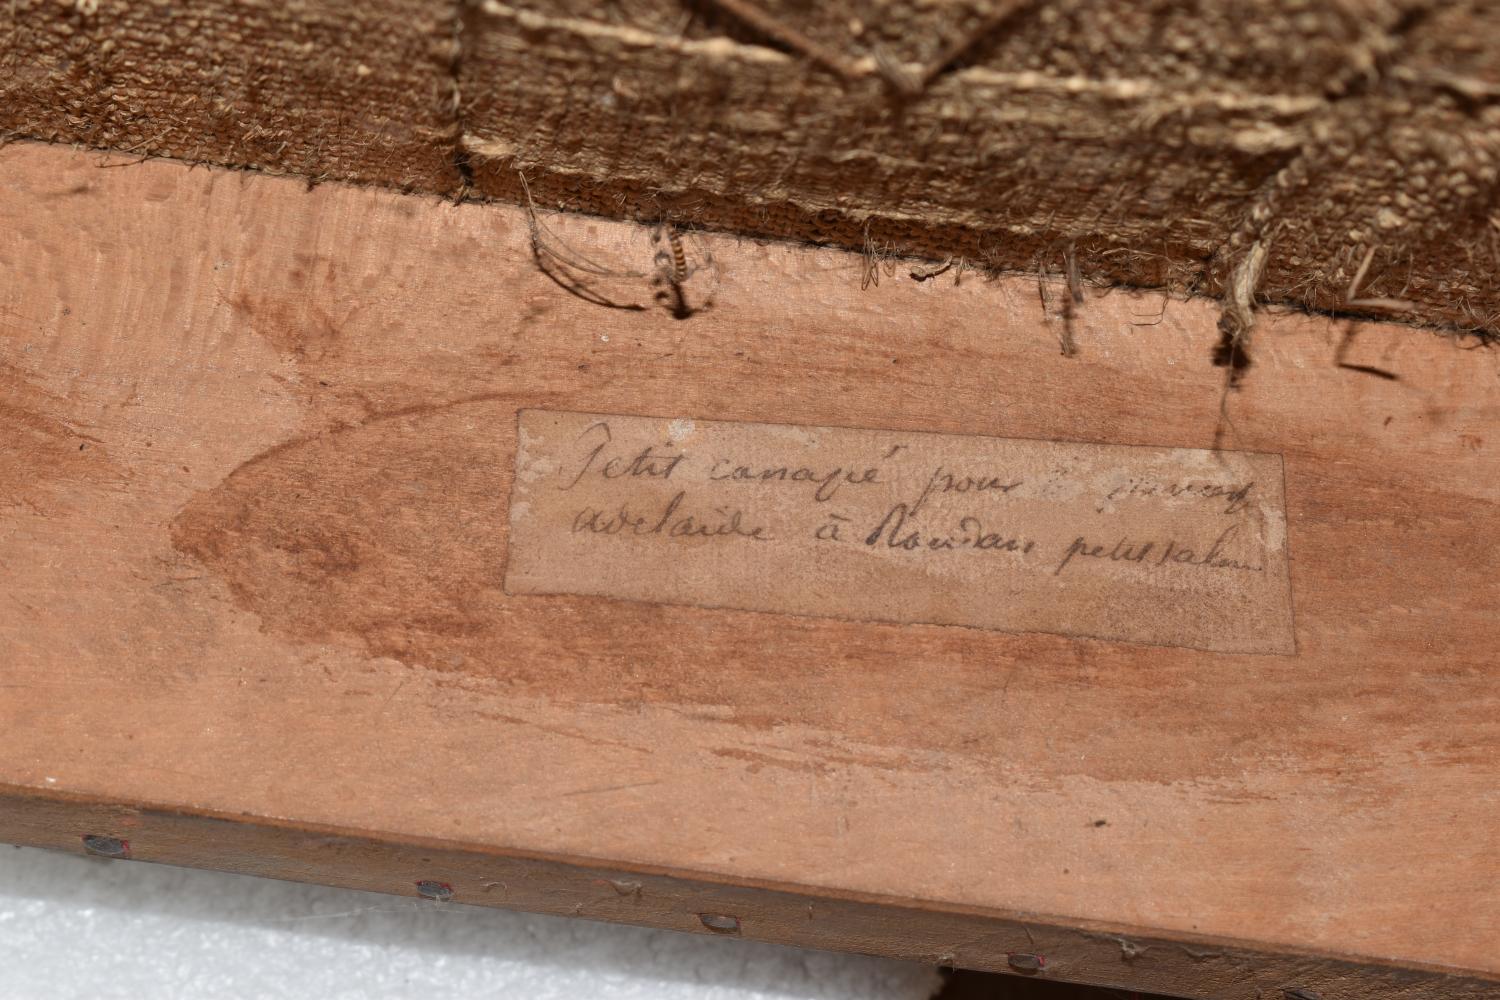 Petit canapé pour
adelaide à Randan petit salon